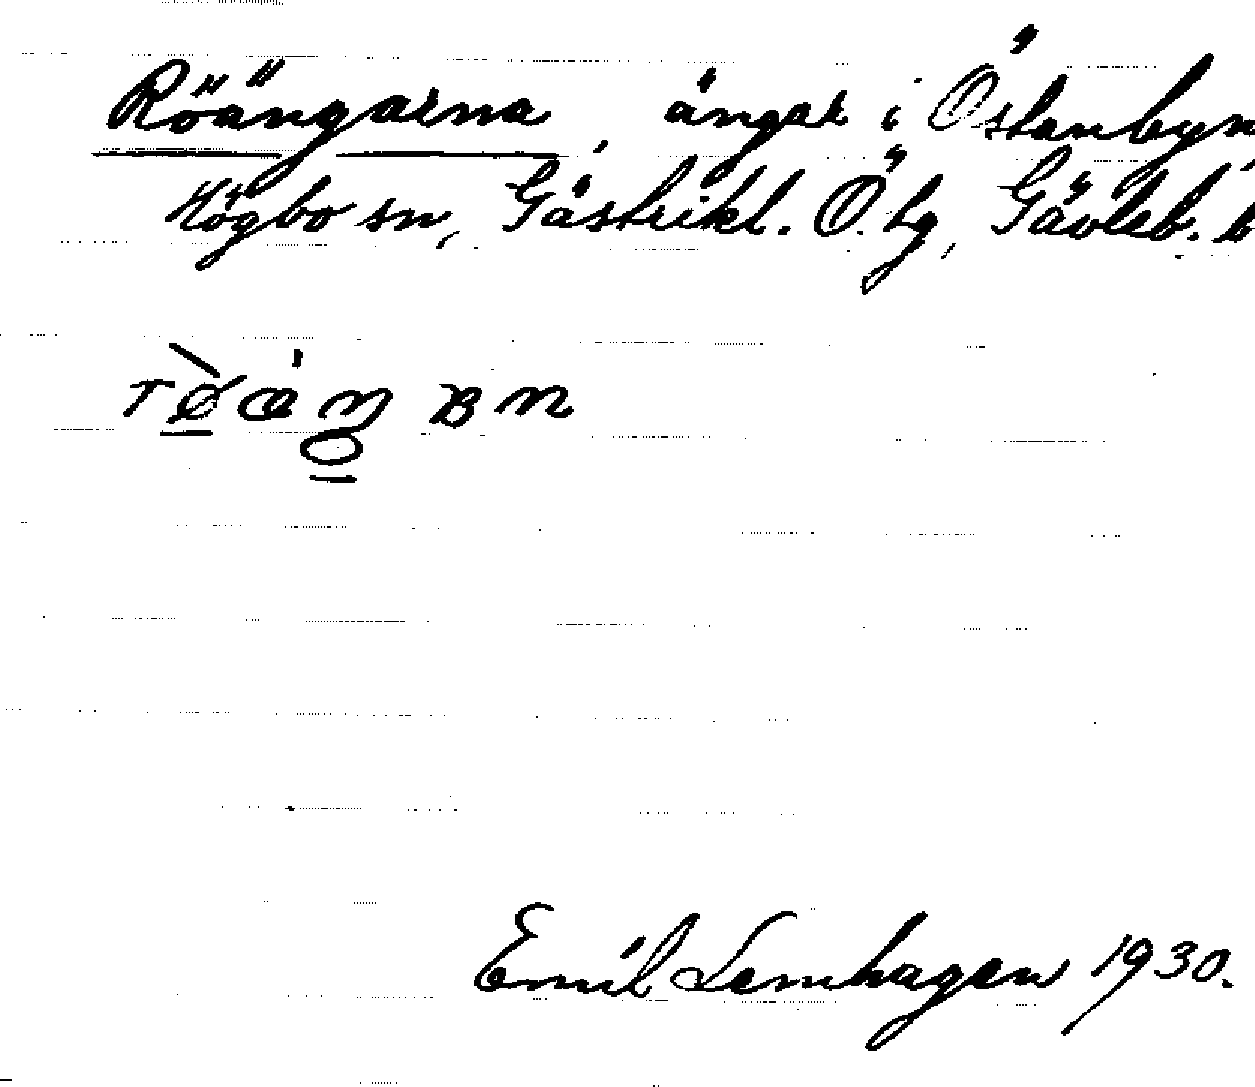 Röängarna, ängar i Östanbyn
Högbo sn, Gästrikl. Ö. tg, Gävleb.
Emil Lernhagen 1930.